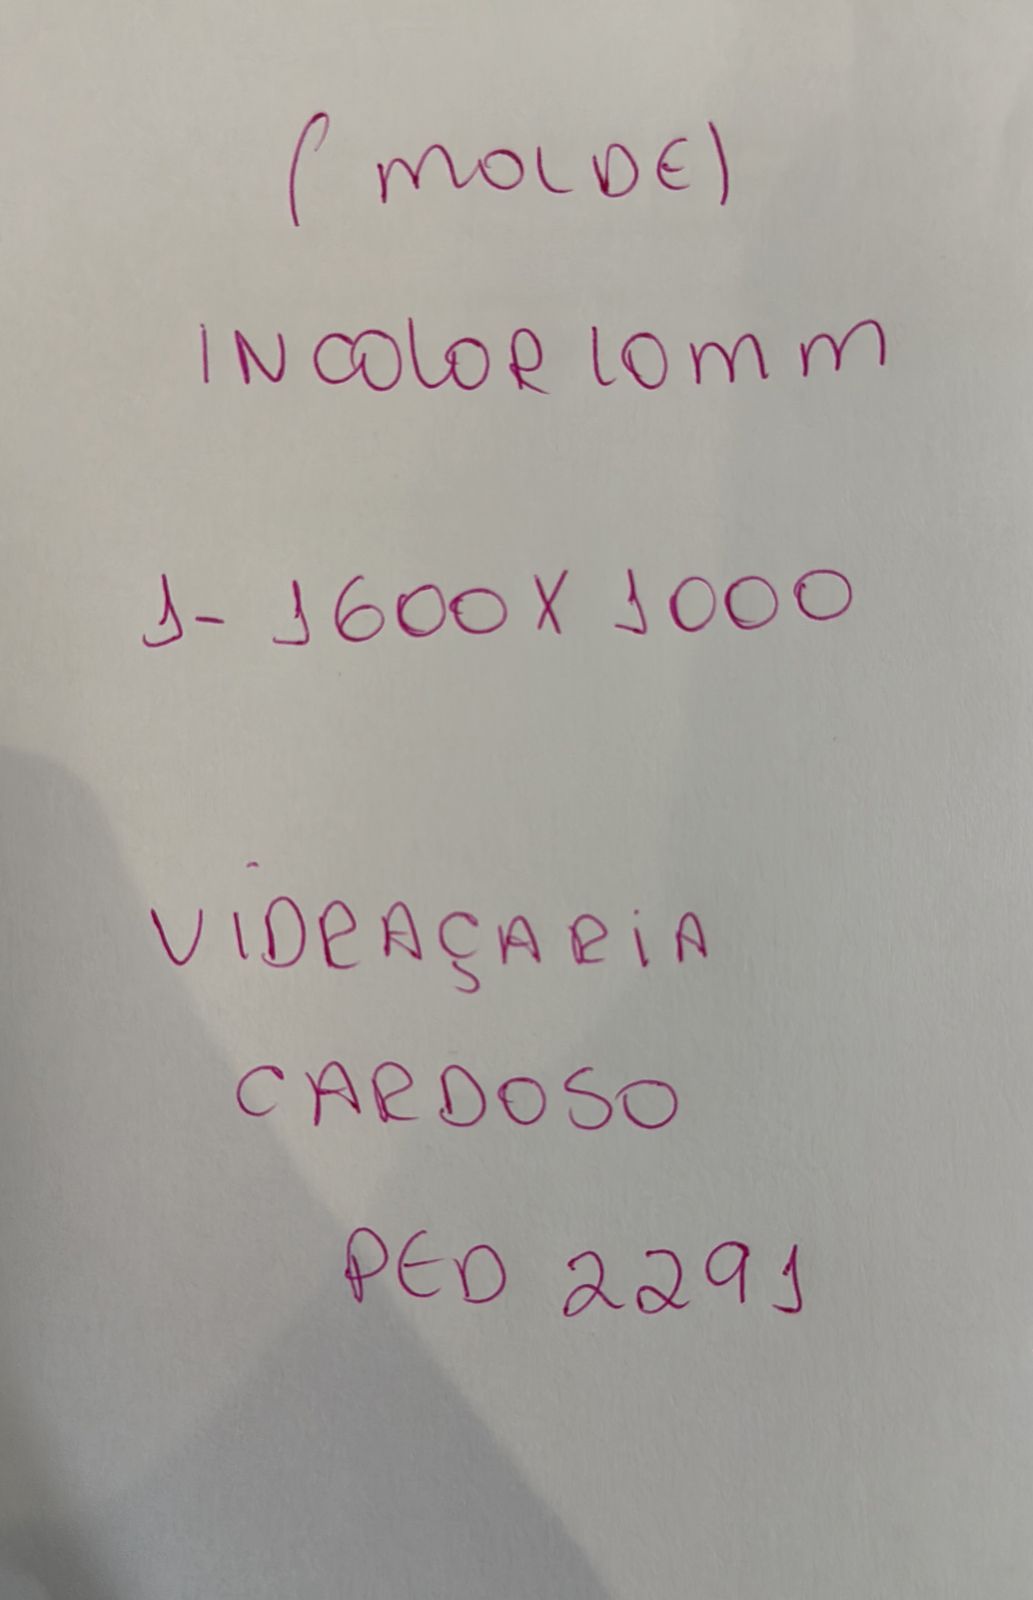 (MOLDE)
INCOLOR 10mm
1- 1600X1000
VIDRAÇARIA
CARDOSO
PED 2291